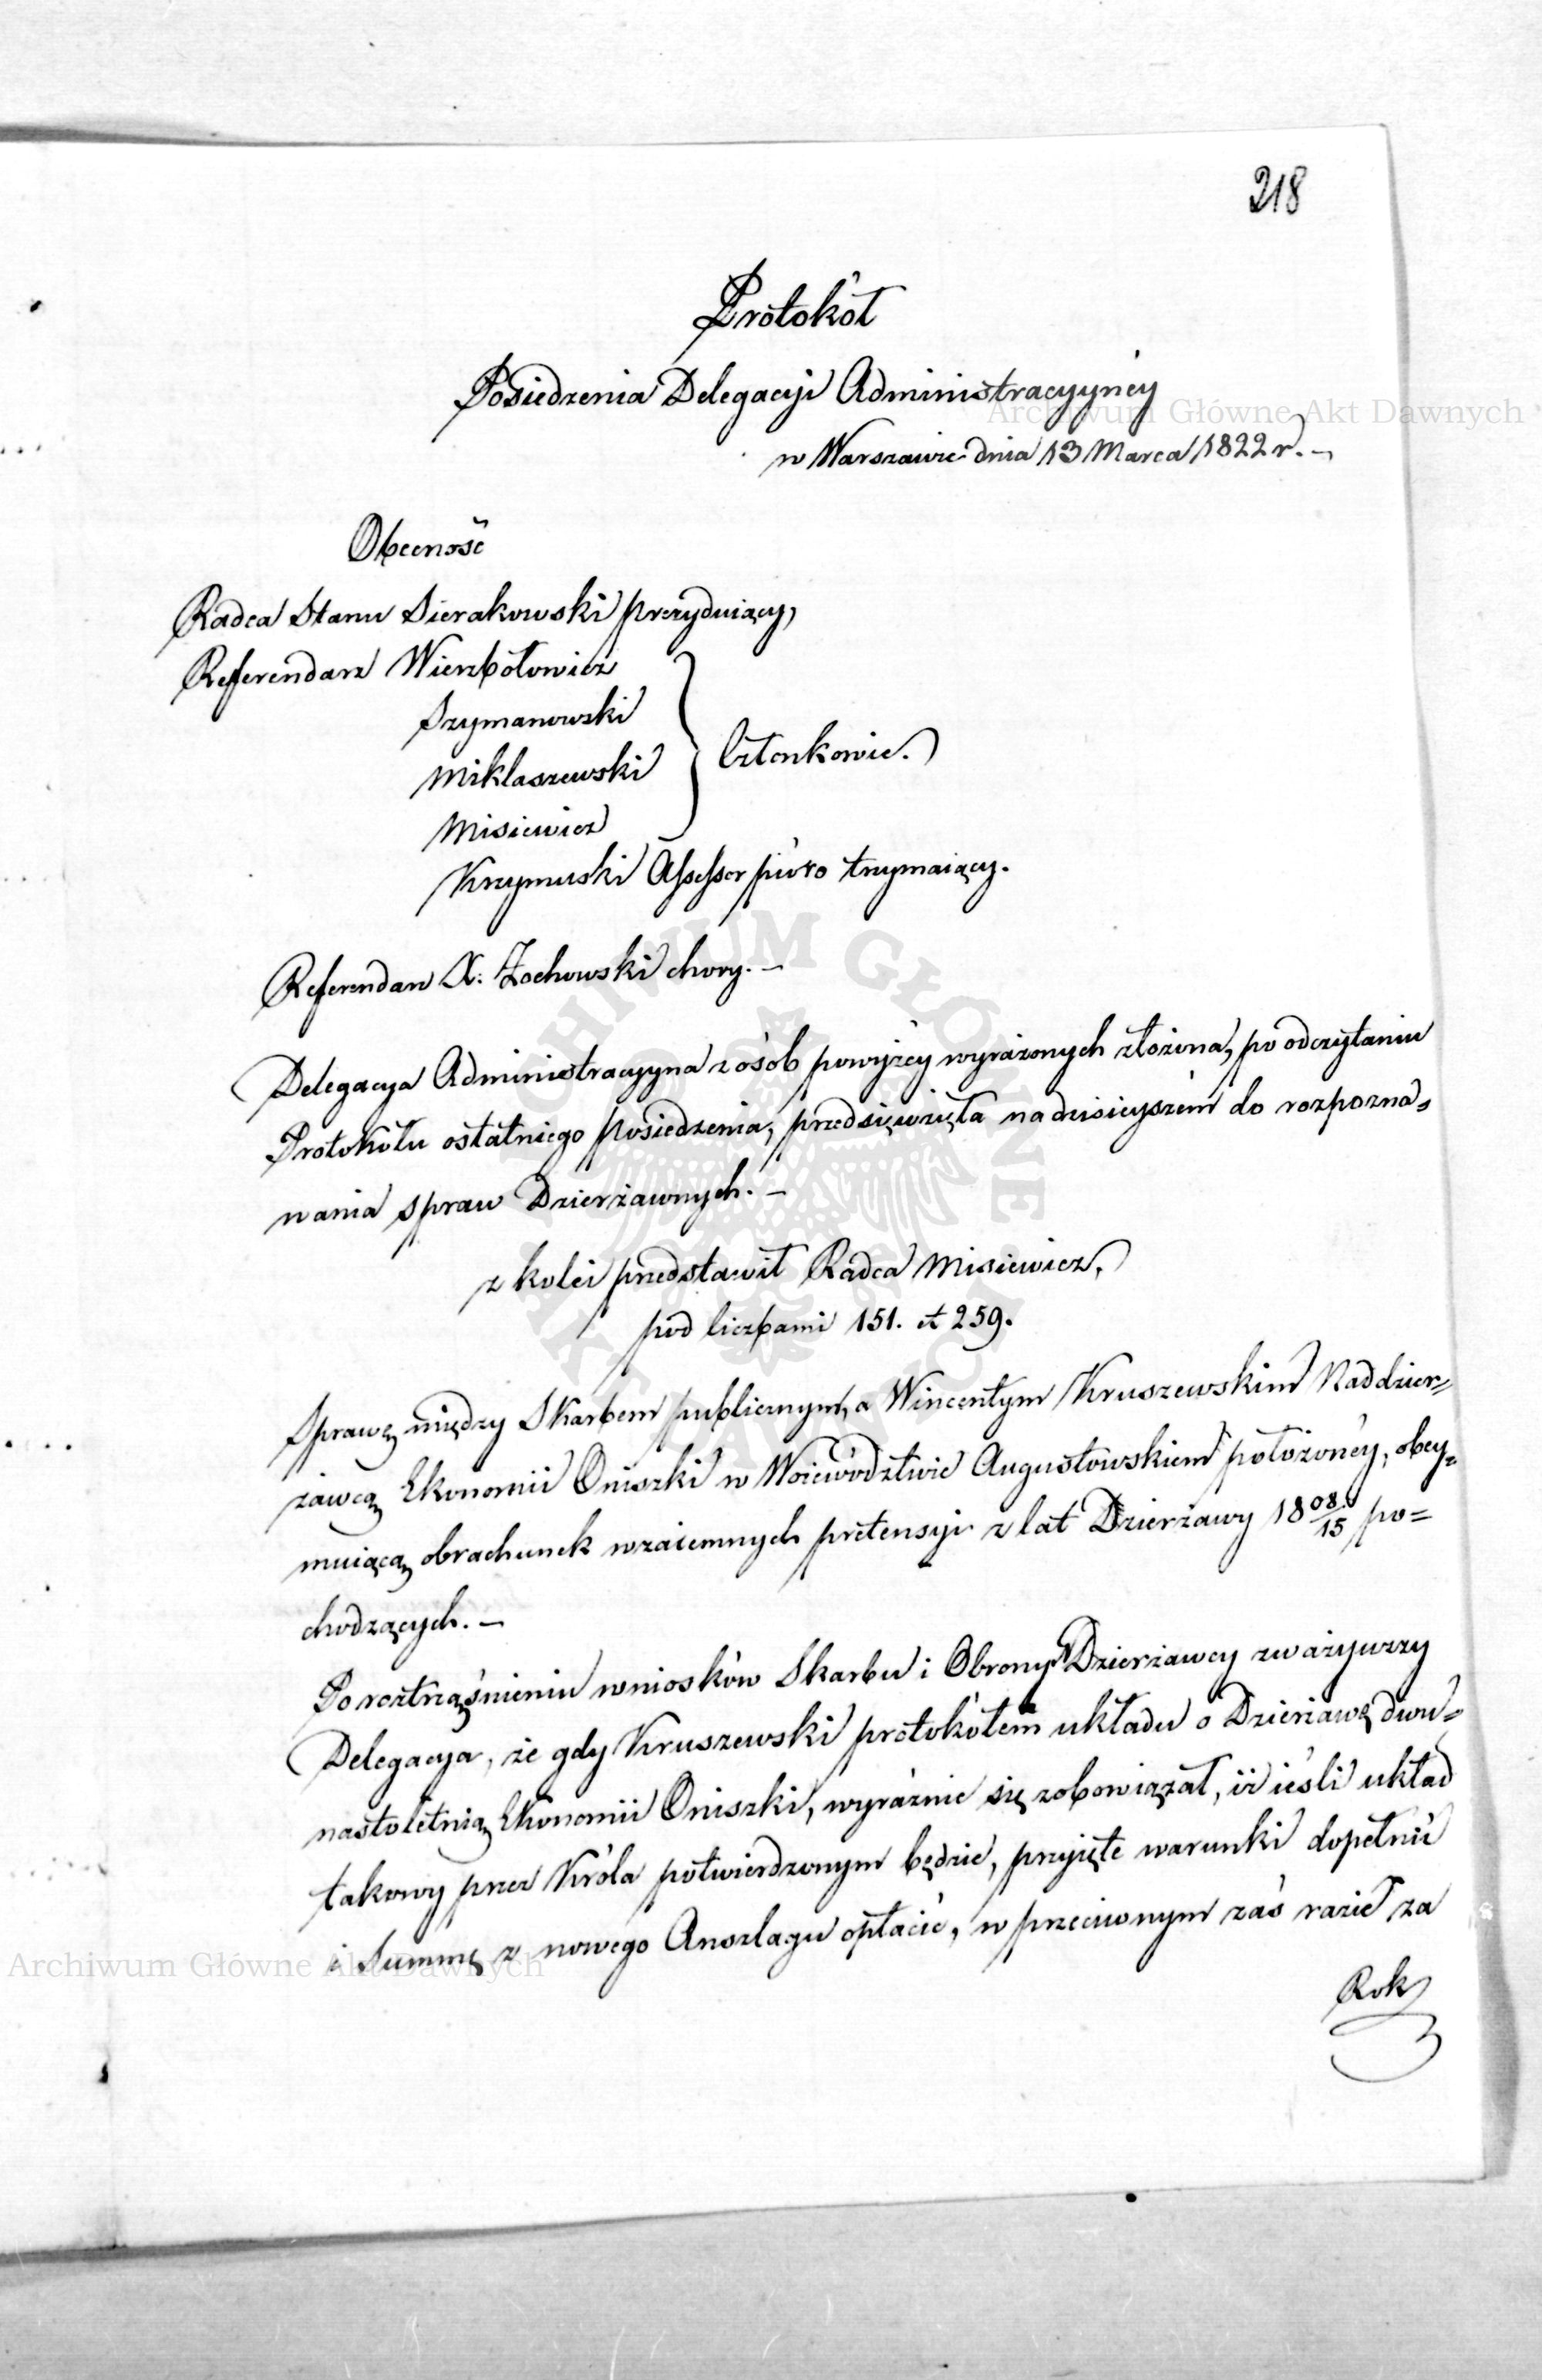 218
Protokół
Posiedzenia Delegacyi Administracyynéy
w Warszawie dnia 13 Marca 1822 r. –
Obecność
Radca Stanu Sierakowski prezyduiący,
Referendarz Wierzbołowicz
Szymanowski
Miklaszewski
Członkowie.
Misiewicz
Krzymuski Assessor pióro trzymaiący.
Referendarz X. Żochowski chory. –
Delegacya Administracyyna z osób powyżéy wyrażonych złożona, po odczytaniu
Protokółu ostatniego posiedzenia, przedsięwzięła na dzisieyszém do rozpozna=
wania spraw Dzierżawnych. –
z kolei przedstawił Radca Misiewicz,
pod liczbami 151. et 259.
Sprawę między Skarbem publicznym, a Wincentym Kruszewskim Naddzier=
żawcą Ekonomii Oniszki w Woiewództwie Augustowskiem położonéy, obey=
muiącą obrachunek wzaiemnych pretensyi z lat Dzierżawy 18 08/15 po=
chodzących. –
Po roztrząśnieniu wniosków Skarbu i Obrony Dzierżawcy zważywszy
Delegacya, że gdy Kruszewski protokółem układu o Dzierżawę dwu=
nastoletnią Ekonomii Oniszki, wyraźnie się zobowiązał, iż ieśli układ
takowy przez Króla potwierdzonym będzie, przyięte warunki dopełnić
i Summę z nowego Anszlagu opłacić, w przeciwnym zaś razie za
Rok
Archiwum Główne Akt Dawnych
Archiwum Główne Akt Dawnych
ARCHIWUM GŁÓWNE AKT DAWNYCH